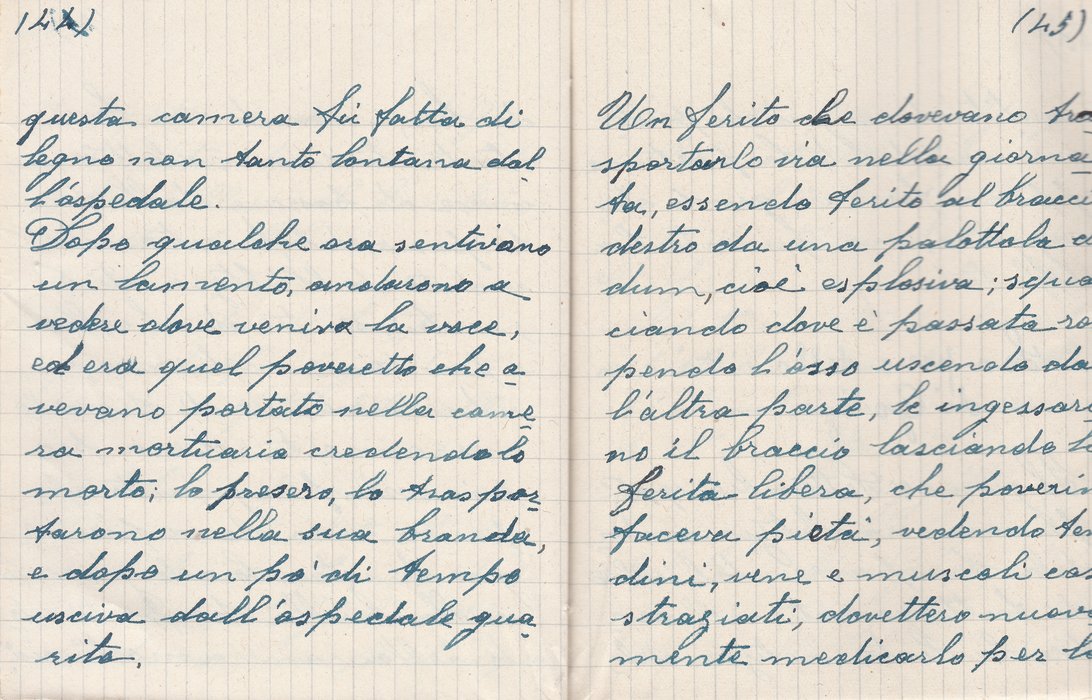 (44)
questa camera fù fatta di
legno non tanto lontana dal
l'ospedale.
Dopo qualche ora sentivano
un lamento, andarono a
vedere dove veniva la voce,
ed era quel poveretto che a_
vevano portato nella came_
ra mortuaria credendolo
morto; lo presero, lo traspor_
tarono nella sua branda,
e dopo un pò di tempo
usciva dall'ospedale gua_
rito.
(45)
Un ferito che dovevano tra
sportarlo via nella giorna_
ta, essendo ferito al bracci
destro da una palottola
dum, cioè esplosiva; squa
ciando dove è passata ro
pendo l'osso uscendo da
l'altra parte, le ingessar
no il braccio lasciando l
ferita libera, che poverin
faceva pietà, vedendo ten
dini, vene e muscoli cos
straziati, dovettero nuova
mente medicarlo per